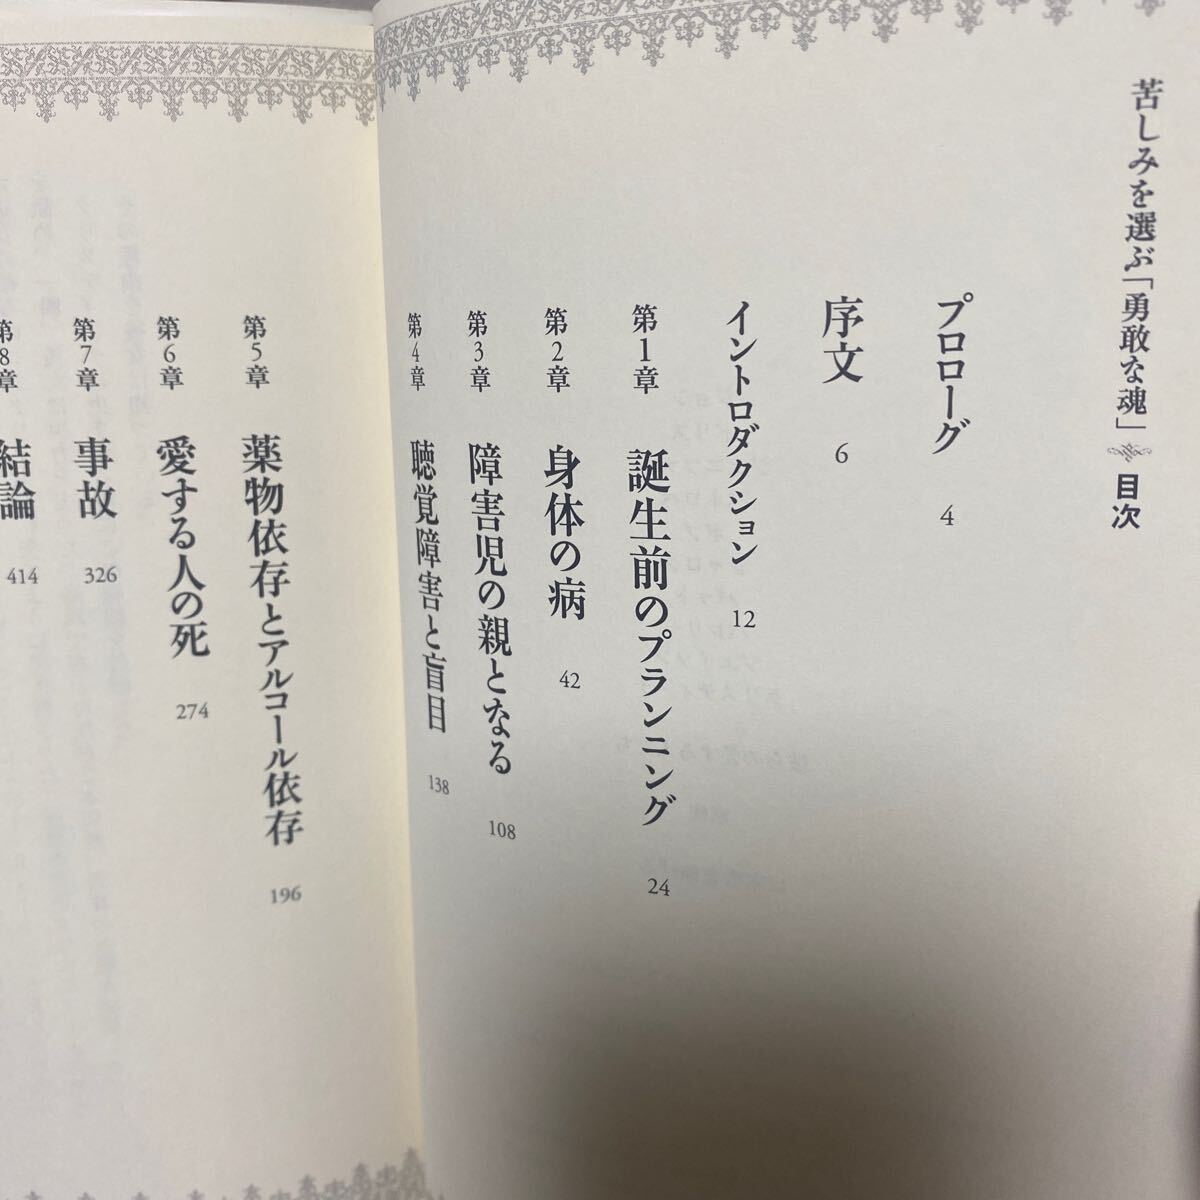 苦しみを選ぶ「勇敢な魂」 目次
プロローグ 4
序文 6
イントロダクション 12
第1章 誕生前のプランニング 24
第2章 身体の病 42
第3章 障害児の親となる 108
第4章 聴覚障害と盲目 138
第5章 薬物依存とアルコール依存 196
第6章 愛する人の死 274
第7章 事故 326
第8章 結論 414